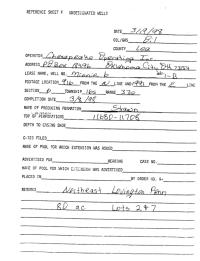 REFERENCE SHEET F UNDESIGNATED WELLS
DATE 3/19/98
OIL/GAS
COUNTY Lea
OPERATOR Chesapeake Operating Inc
ADDRESS PO Box 18496 Oklahoma City OK 73154
LEASE NAME, WELL NO. Minnie
FOOTAGE LOCATION FROM THE N LINE AND FROM THE E LINE
SECTION TOWNSHIP 16s RANGE 37e
COMPLETION DATE 3/8/98
NAME OF PRODUCING FORMATION Strawn
TOP OF PERFORATIONS 11680-11708
DEPTH TO CASING SHOE
C-123 FILED
NAME OF POOL FOR WHICH EXTENSION WAS ASKED
ADVERTISED FOR HEARING CASE NO.
NAME OF POOL FOR WHICH EXTENSION WAS ADVERTISED
PLACED IN BY ORDER R-
REMARKS Northeast Lovington Penn
80 ac Lots 2 & 7